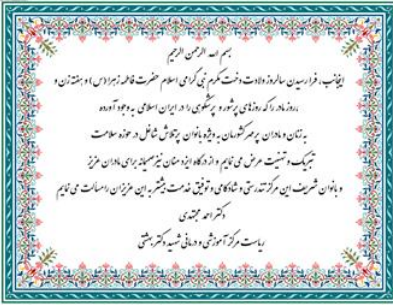 بسم الله الرحمن الرحیم
اینجانب، فرا رسیدن سالروز ولادت دخت مکرم نبی گرامی اسلام حضرت فاطمه زهرا (س) و هفته زن و
روز مادر را که روزهای پرشور و پرشکوهی را در ایران اسلامی به وجود آورده،
به زنان و مادران پرمهر کشورمان به ویژه بانوان پرتلاش شاغل در حوزه سلامت
تبریک و تهنیت عرض می نمایم و از درگاه ایزد منان نیز صمیمانه برای مادران عزیز
و بانوان شریف این مرکز تندرستی و شادکامی و توفیق خدمت بیشتر به این عزیزان را مسالت می نمایم
دکتر احمد مجتهدی
ریاست مرکز آموزشی و درمانی شهید دکتر بهشتی